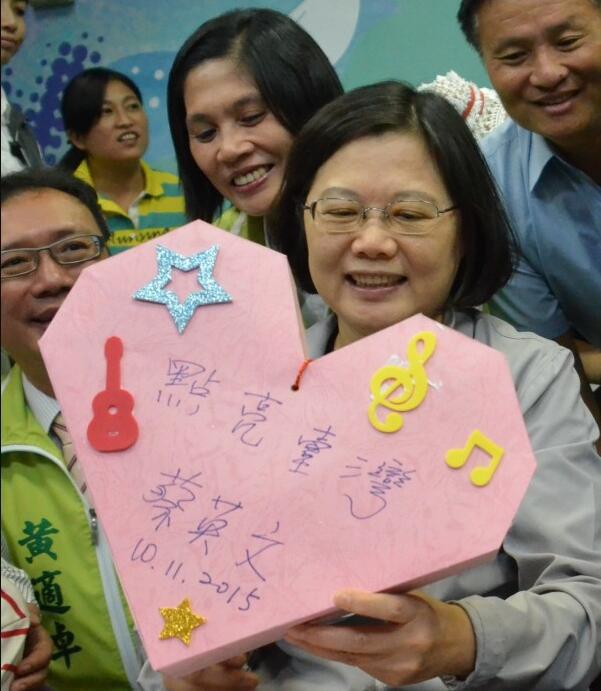 點亮臺灣
蔡英文
10.11.2015
黃適卓